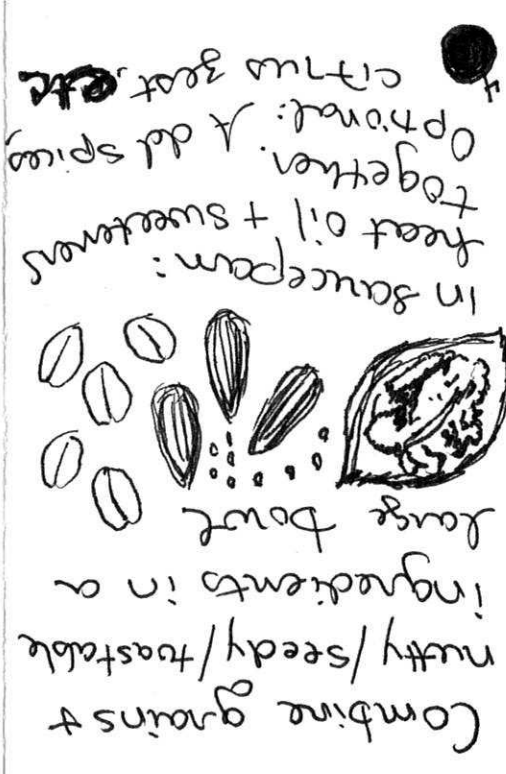 Combine grains +
nutty/seedy/toastable
ingredients in a
large bowl
In saucepan:
heat oil + sweeteners
together.
Optional: Add spices,
citrus zest, etc
4